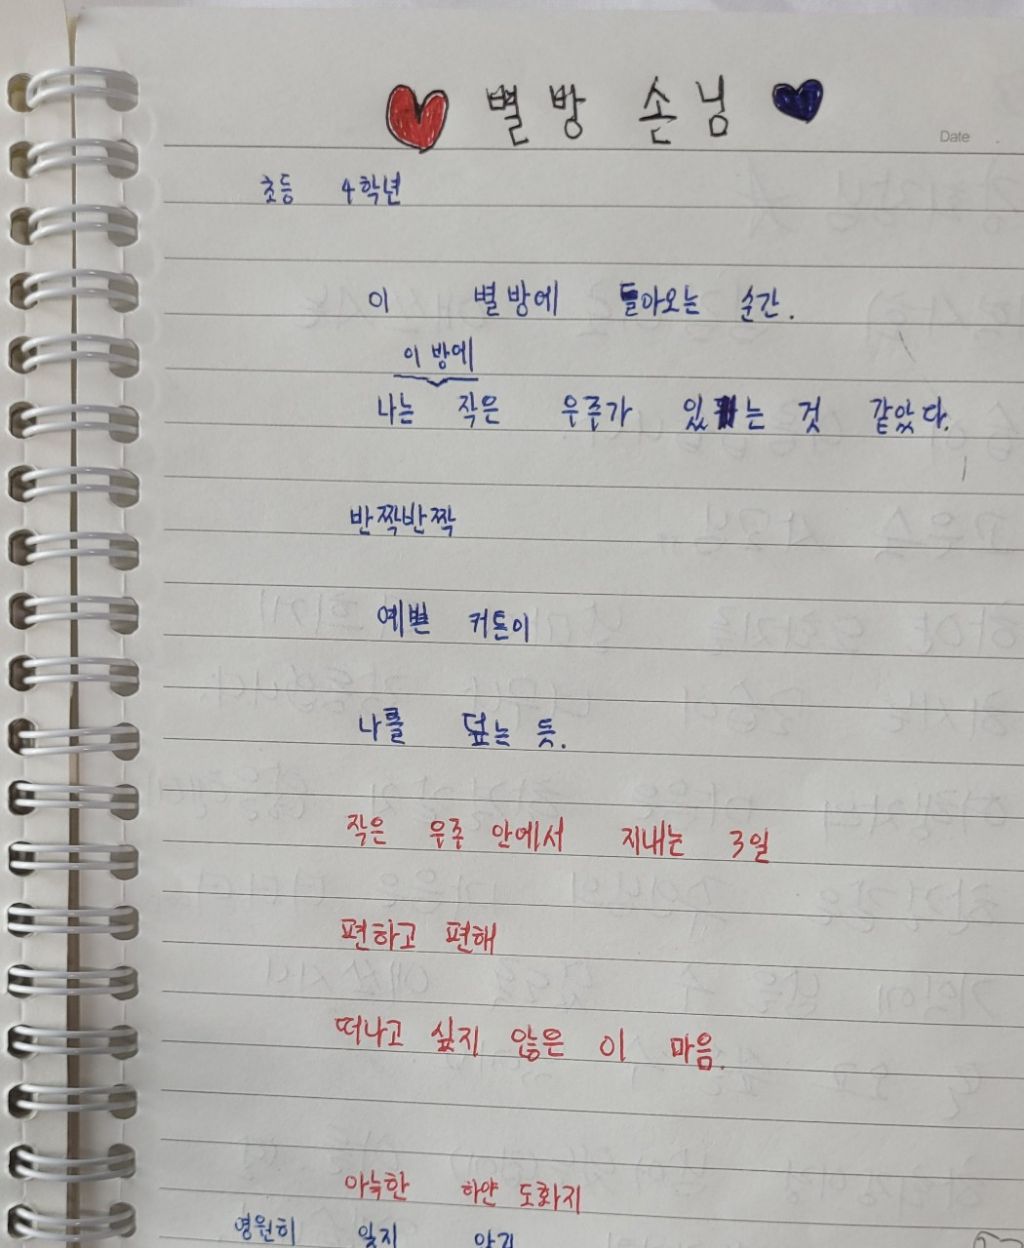 별방 손님
Date
초등 4학년
이 별방에 들아오는 순간.
이 방에
나는 작은 우주가 있는 것 같았다.
반짝반짝
예쁜 커튼이
나를 덮는 듯.
작은 우주 안에서 지내는 3일
편하고 편해
떠나고 싶지 않은 이 마음.
아늑한 하얀 도화지
영원히 잊지 않기